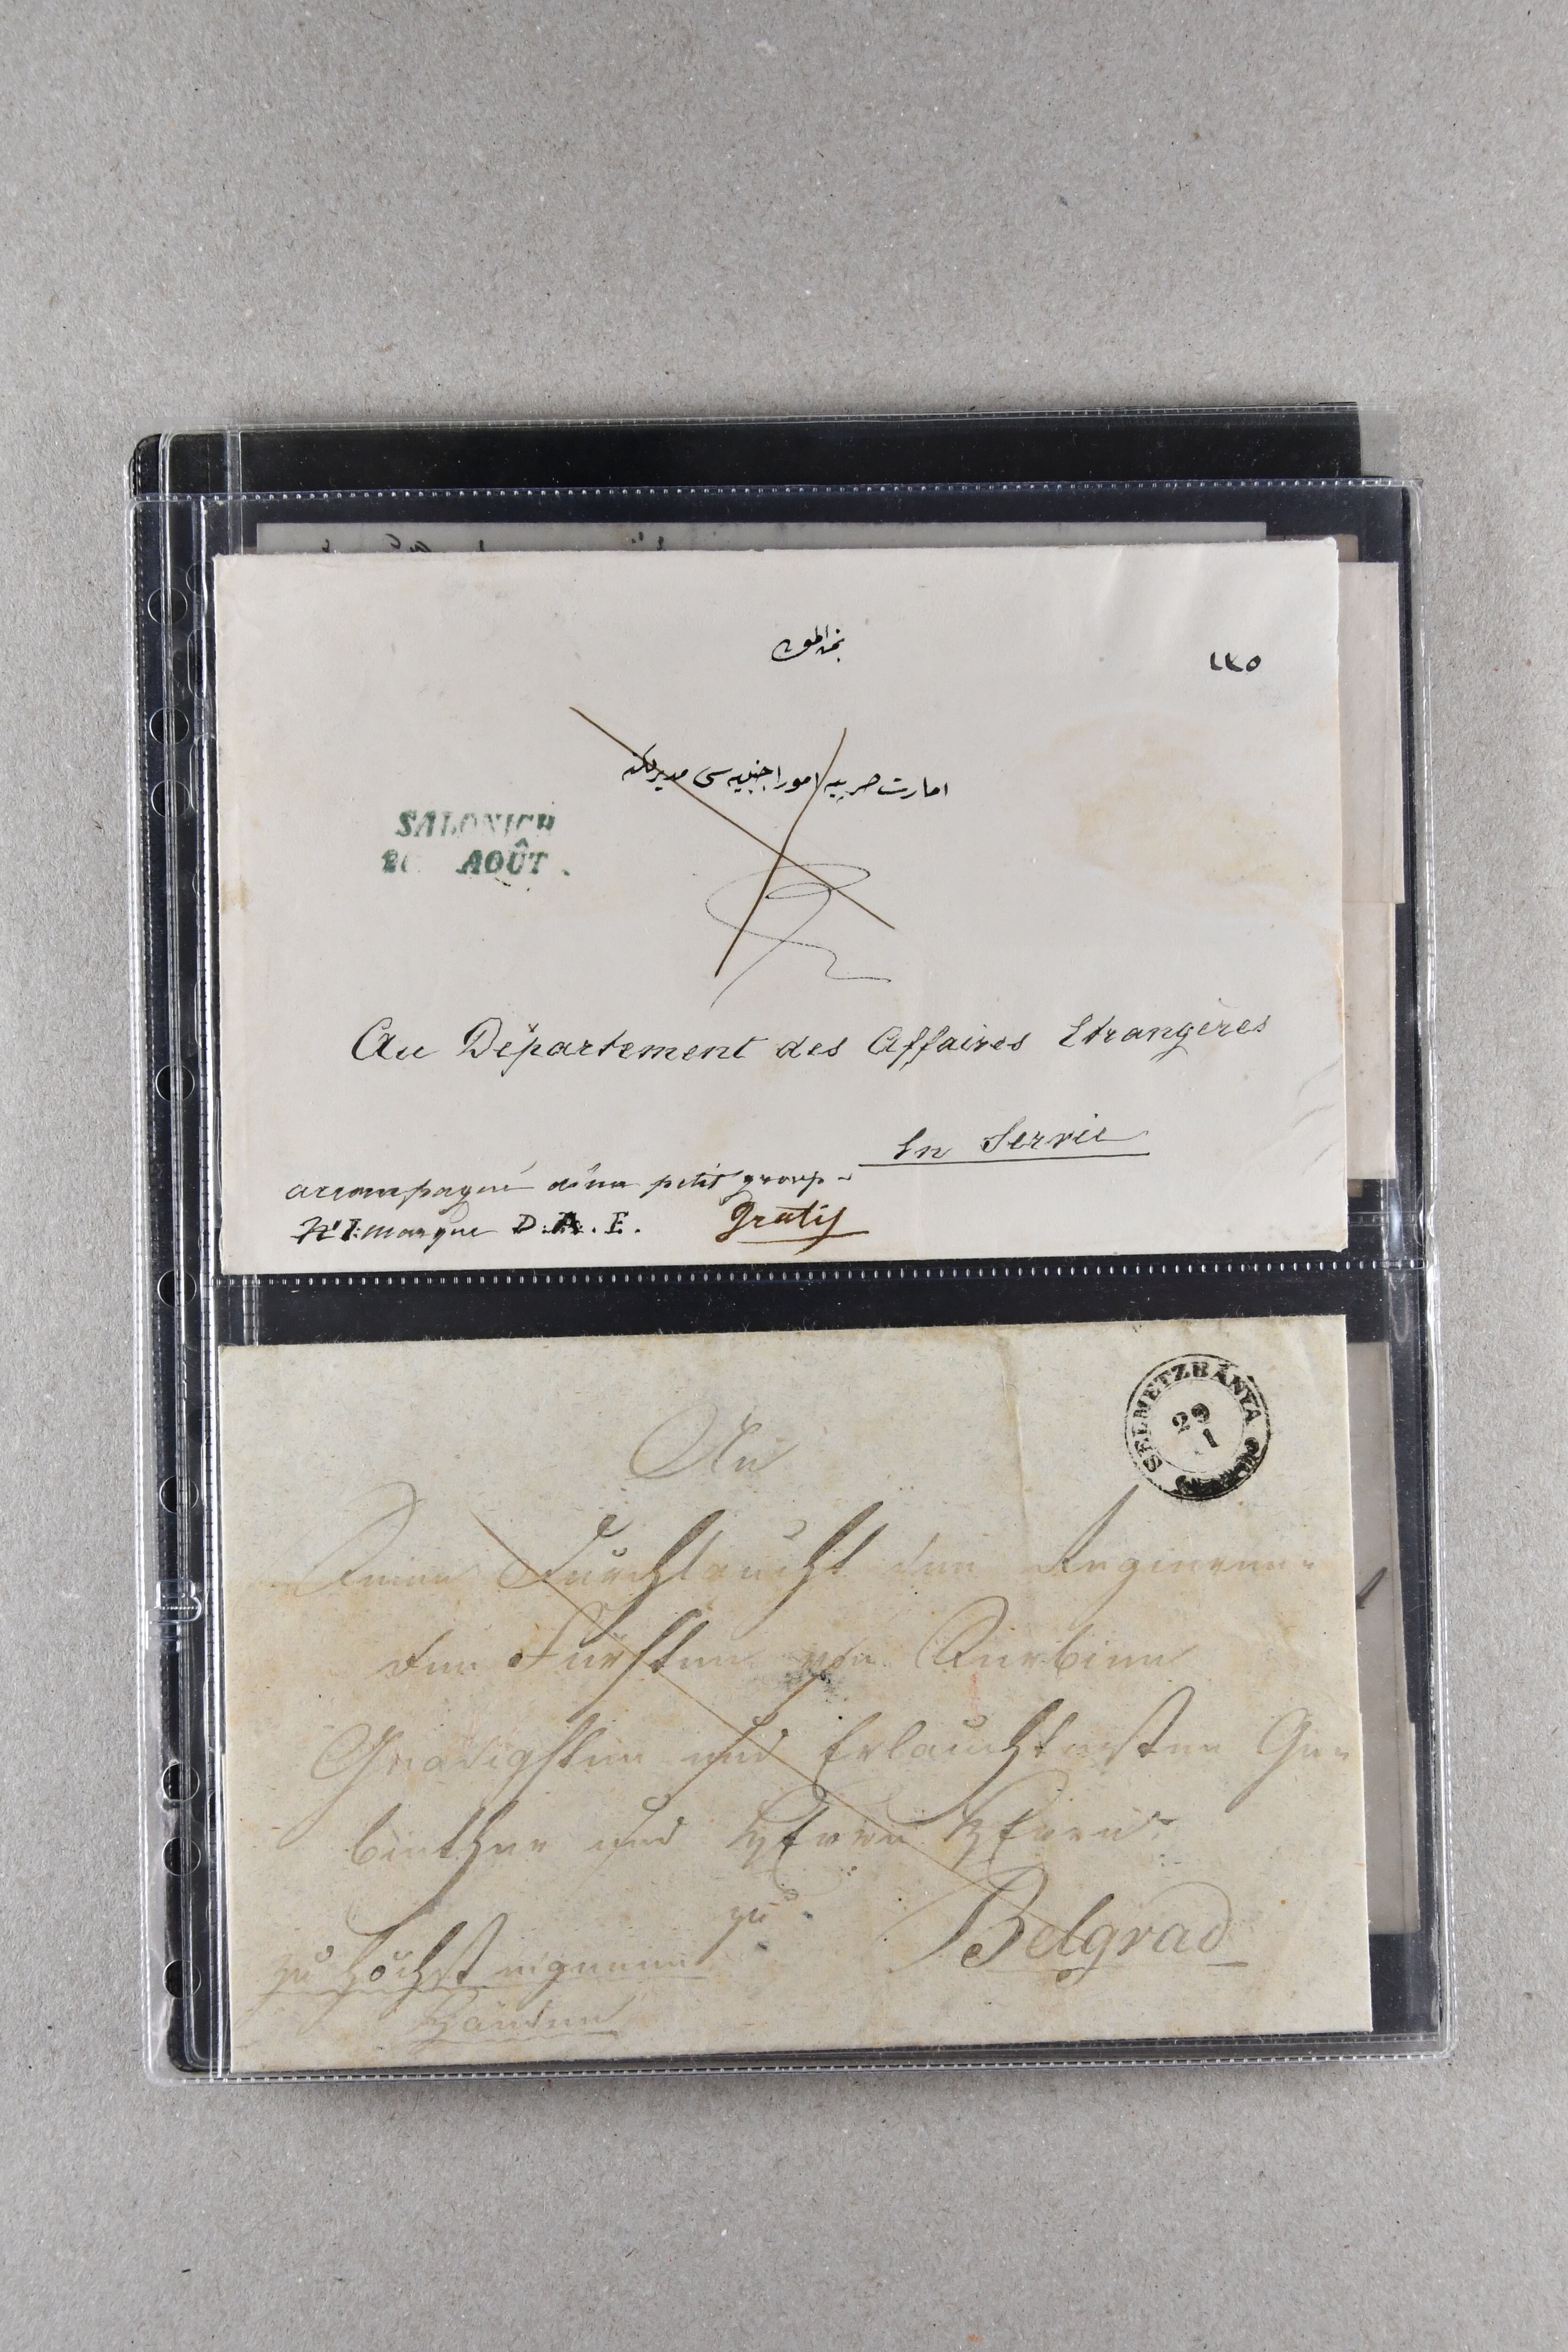 ١٣٥
امارت صربیه امور اجنبیه سی مدیرلكنه
SALONICH
2 AOÛT
Au Département des Affaires Etrangères
En Servie
accompagné d'un petit group
Nº 1. marque D. A. E. Gratis
SELMETZBÁNYA
29
1
An
Seine Durchlaucht den Regieren-
den Fürsten von Serbien
Gnädigsten und Erlauchtesten Ge-
biether und Herrn Herrn
zu Belgrad
zu höchst eigenen
Händen